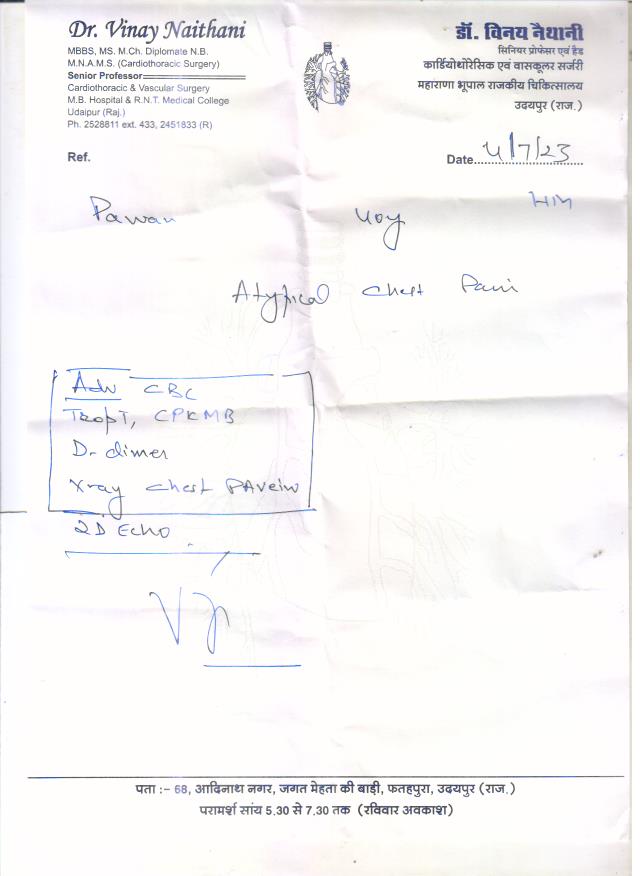 Dr. Vinay Naithani
MBBS, MS. M.Ch. Diplomate N.B.
M.N.A.M.S. (Cardiothoracic Surgery)
Senior Professor
Cardiothoracic & Vascular Surgery
M.B. Hospital & R.N.T. Medical College
Udaipur (Raj.)
Ph. 2528811 ext. 433, 2451833 (R)
डॉ. विनय नैथानी
सिनियर प्रोफेसर एवं हैड
कार्डियोथोरेसिक एवं वासकूलर सर्जरी
महाराणा भूपाल राजकीय चिकित्सालय
उदयपुर (राज.)
Ref.
Date 4/7/23
Pawan 40y
Atypical Chest Pain
Adv CBC
TropT, CPKMB
D-dimer
Xray Chest PAveiw
2D Echo
पता :- 68, आदिनाथ नगर, जगत मेहता की बाड़ी, फतहपुरा, उदयपुर (राज.)
परामर्श सांय 5.30 से 7.30 तक (रविवार अवकाश)